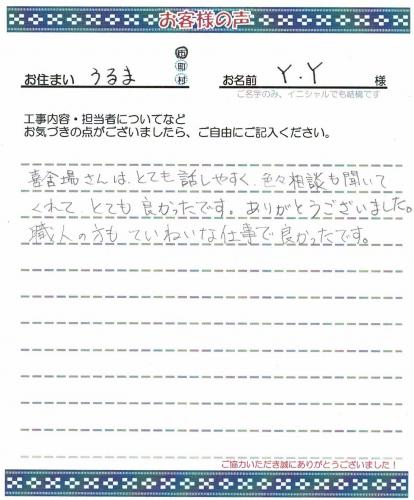 お客様の声
お住まい うるま 市町村 お名前 Y.Y 様
ご名字のみ、イニシャルでも結構です
工事内容・担当者についてなど
お気づきの点がございましたら、ご自由にご記入ください。
喜舎場さんは、とても話しやすく、色々相談も聞いて
くれて とても良かったです。ありがとうございました。
職人の方も ていねいな仕事で良かったです。
ご協力いただき誠にありがとうございました！